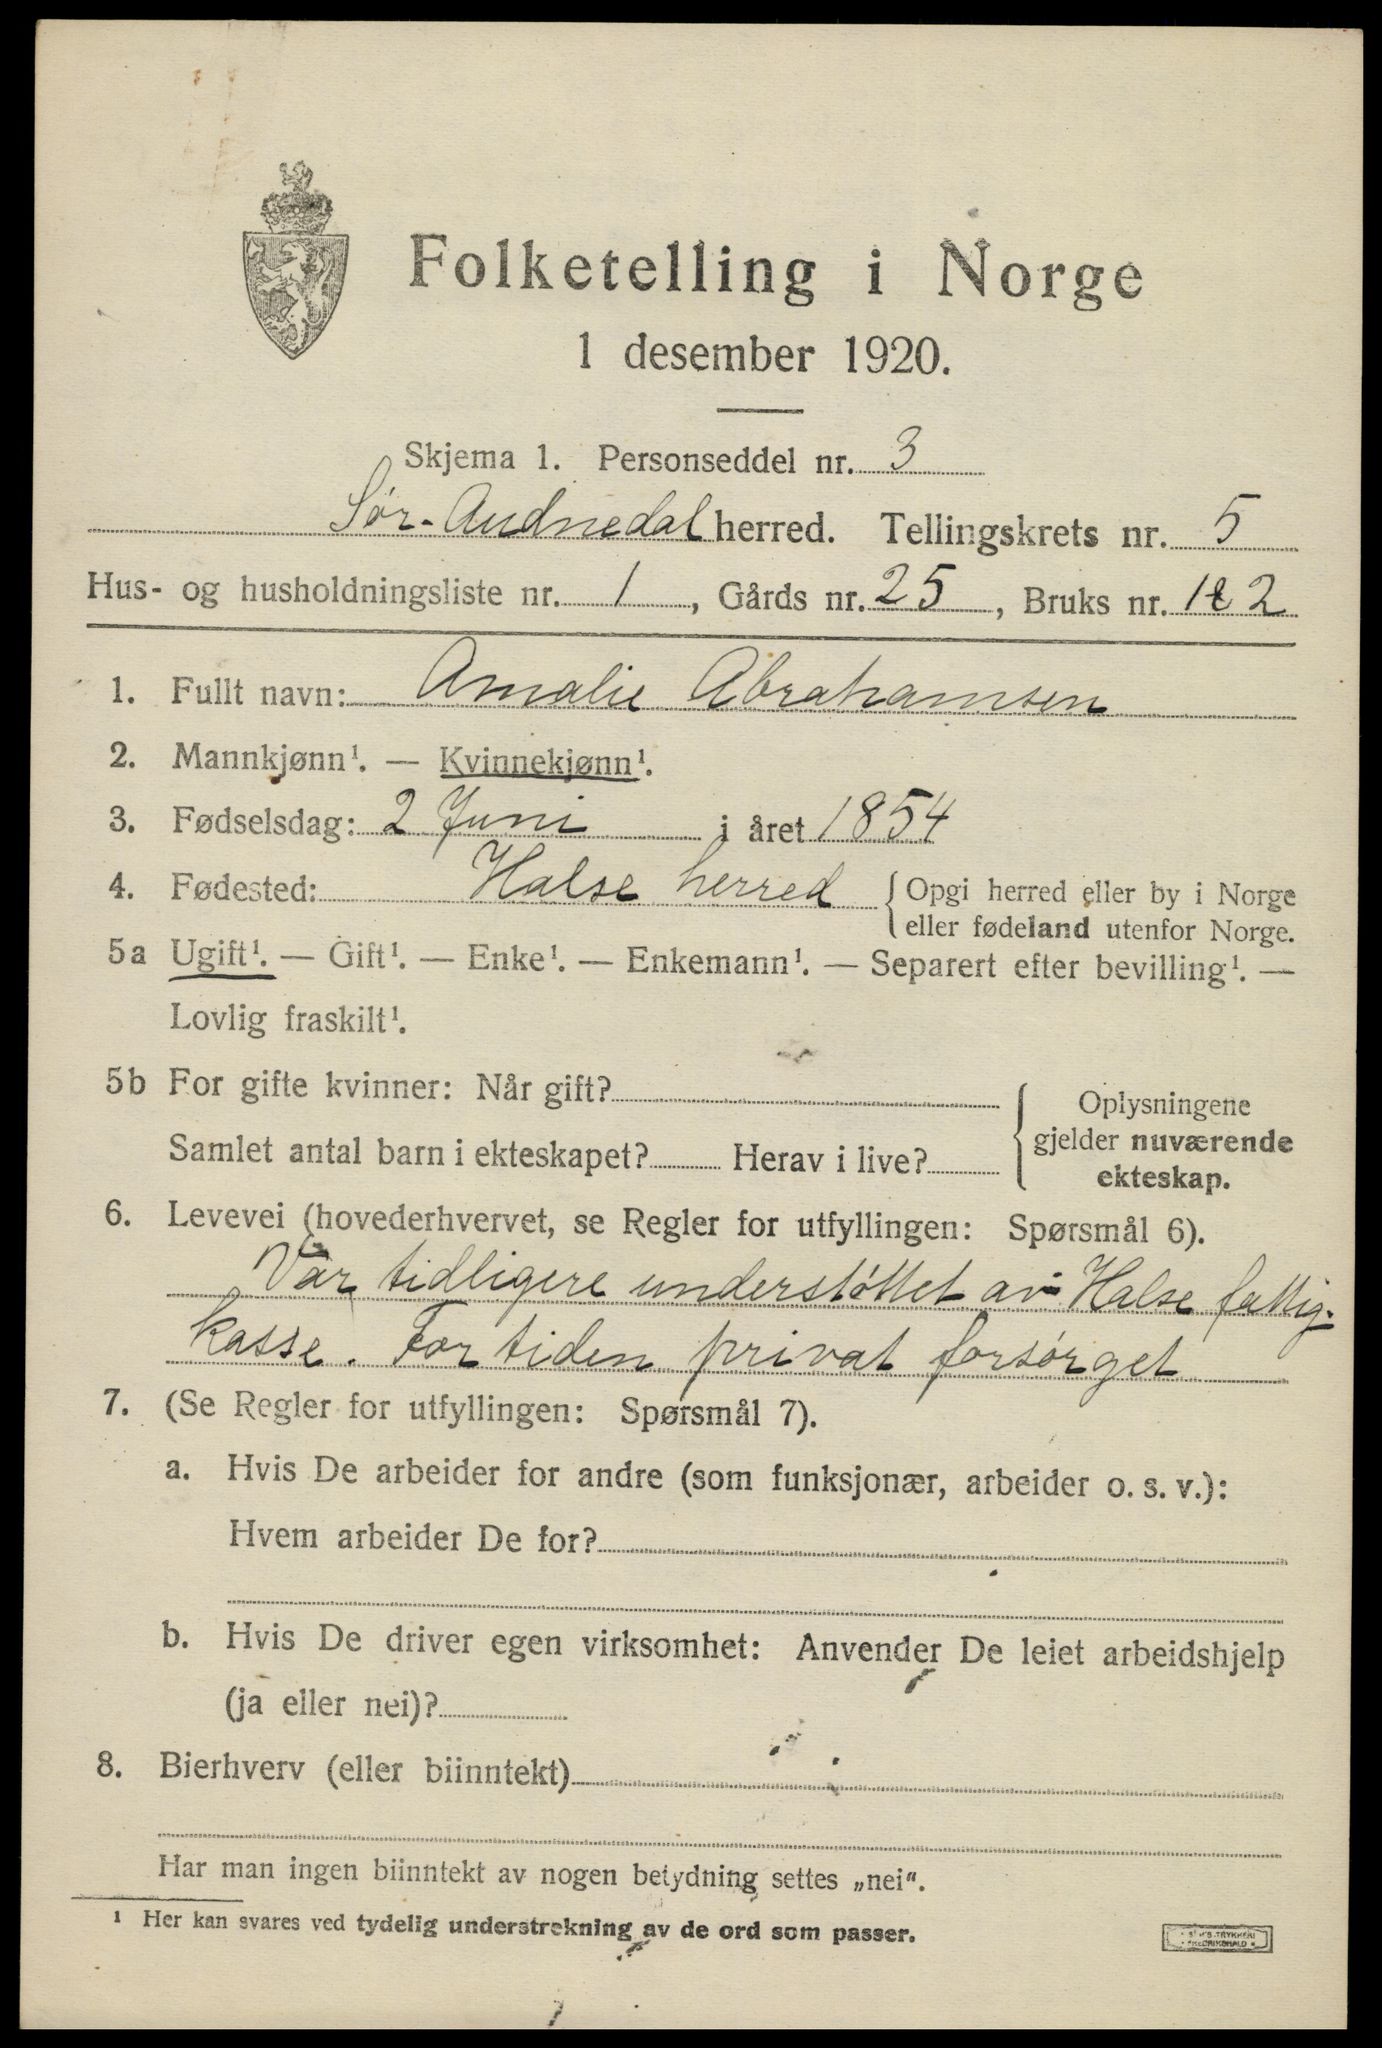 Folketelling i Norge
1 desember 1920.
Skjema 1. Personseddel nr. 3
Sør-Audnedal herred. Tellingskrets nr. 5
Hus- og husholdningsliste nr. 1, Gårds nr. 25, Bruks nr. 2
1. Fullt navn: Amalie Abrahamsen
2. Mannkjønn¹. — Kvinnekjønn¹.
3. Fødselsdag: 2 Juni i året 1854
4. Fødested: Halse herred { Opgi herred eller by i Norge
eller fødeland utenfor Norge.
5a Ugift¹. — Gift¹. — Enke¹. — Enkemann¹. — Separert efter bevilling¹. —
Lovlig fraskilt¹.
5b For gifte kvinner: Når gift?
Samlet antal barn i ekteskapet? Herav i live?
Oplysningene
gjelder nuværende
ekteskap.
6. Levevei (hovederhvervet, se Regler for utfyllingen: Spørsmål 6).
Var tidligere understøttet av Halse fattig-
kasse. For tiden privat forsørget
7. (Se Regler for utfyllingen: Spørsmål 7).
a. Hvis De arbeider for andre (som funksjonær, arbeider o. s. v.):
Hvem arbeider De for?
b. Hvis De driver egen virksomhet: Anvender De leiet arbeidshjelp
(ja eller nei)?
8. Bierhverv (eller biinntekt)
Har man ingen biinntekt av nogen betydning settes „nei“.
¹ Her kan svares ved tydelig understrekning av de ord som passer.